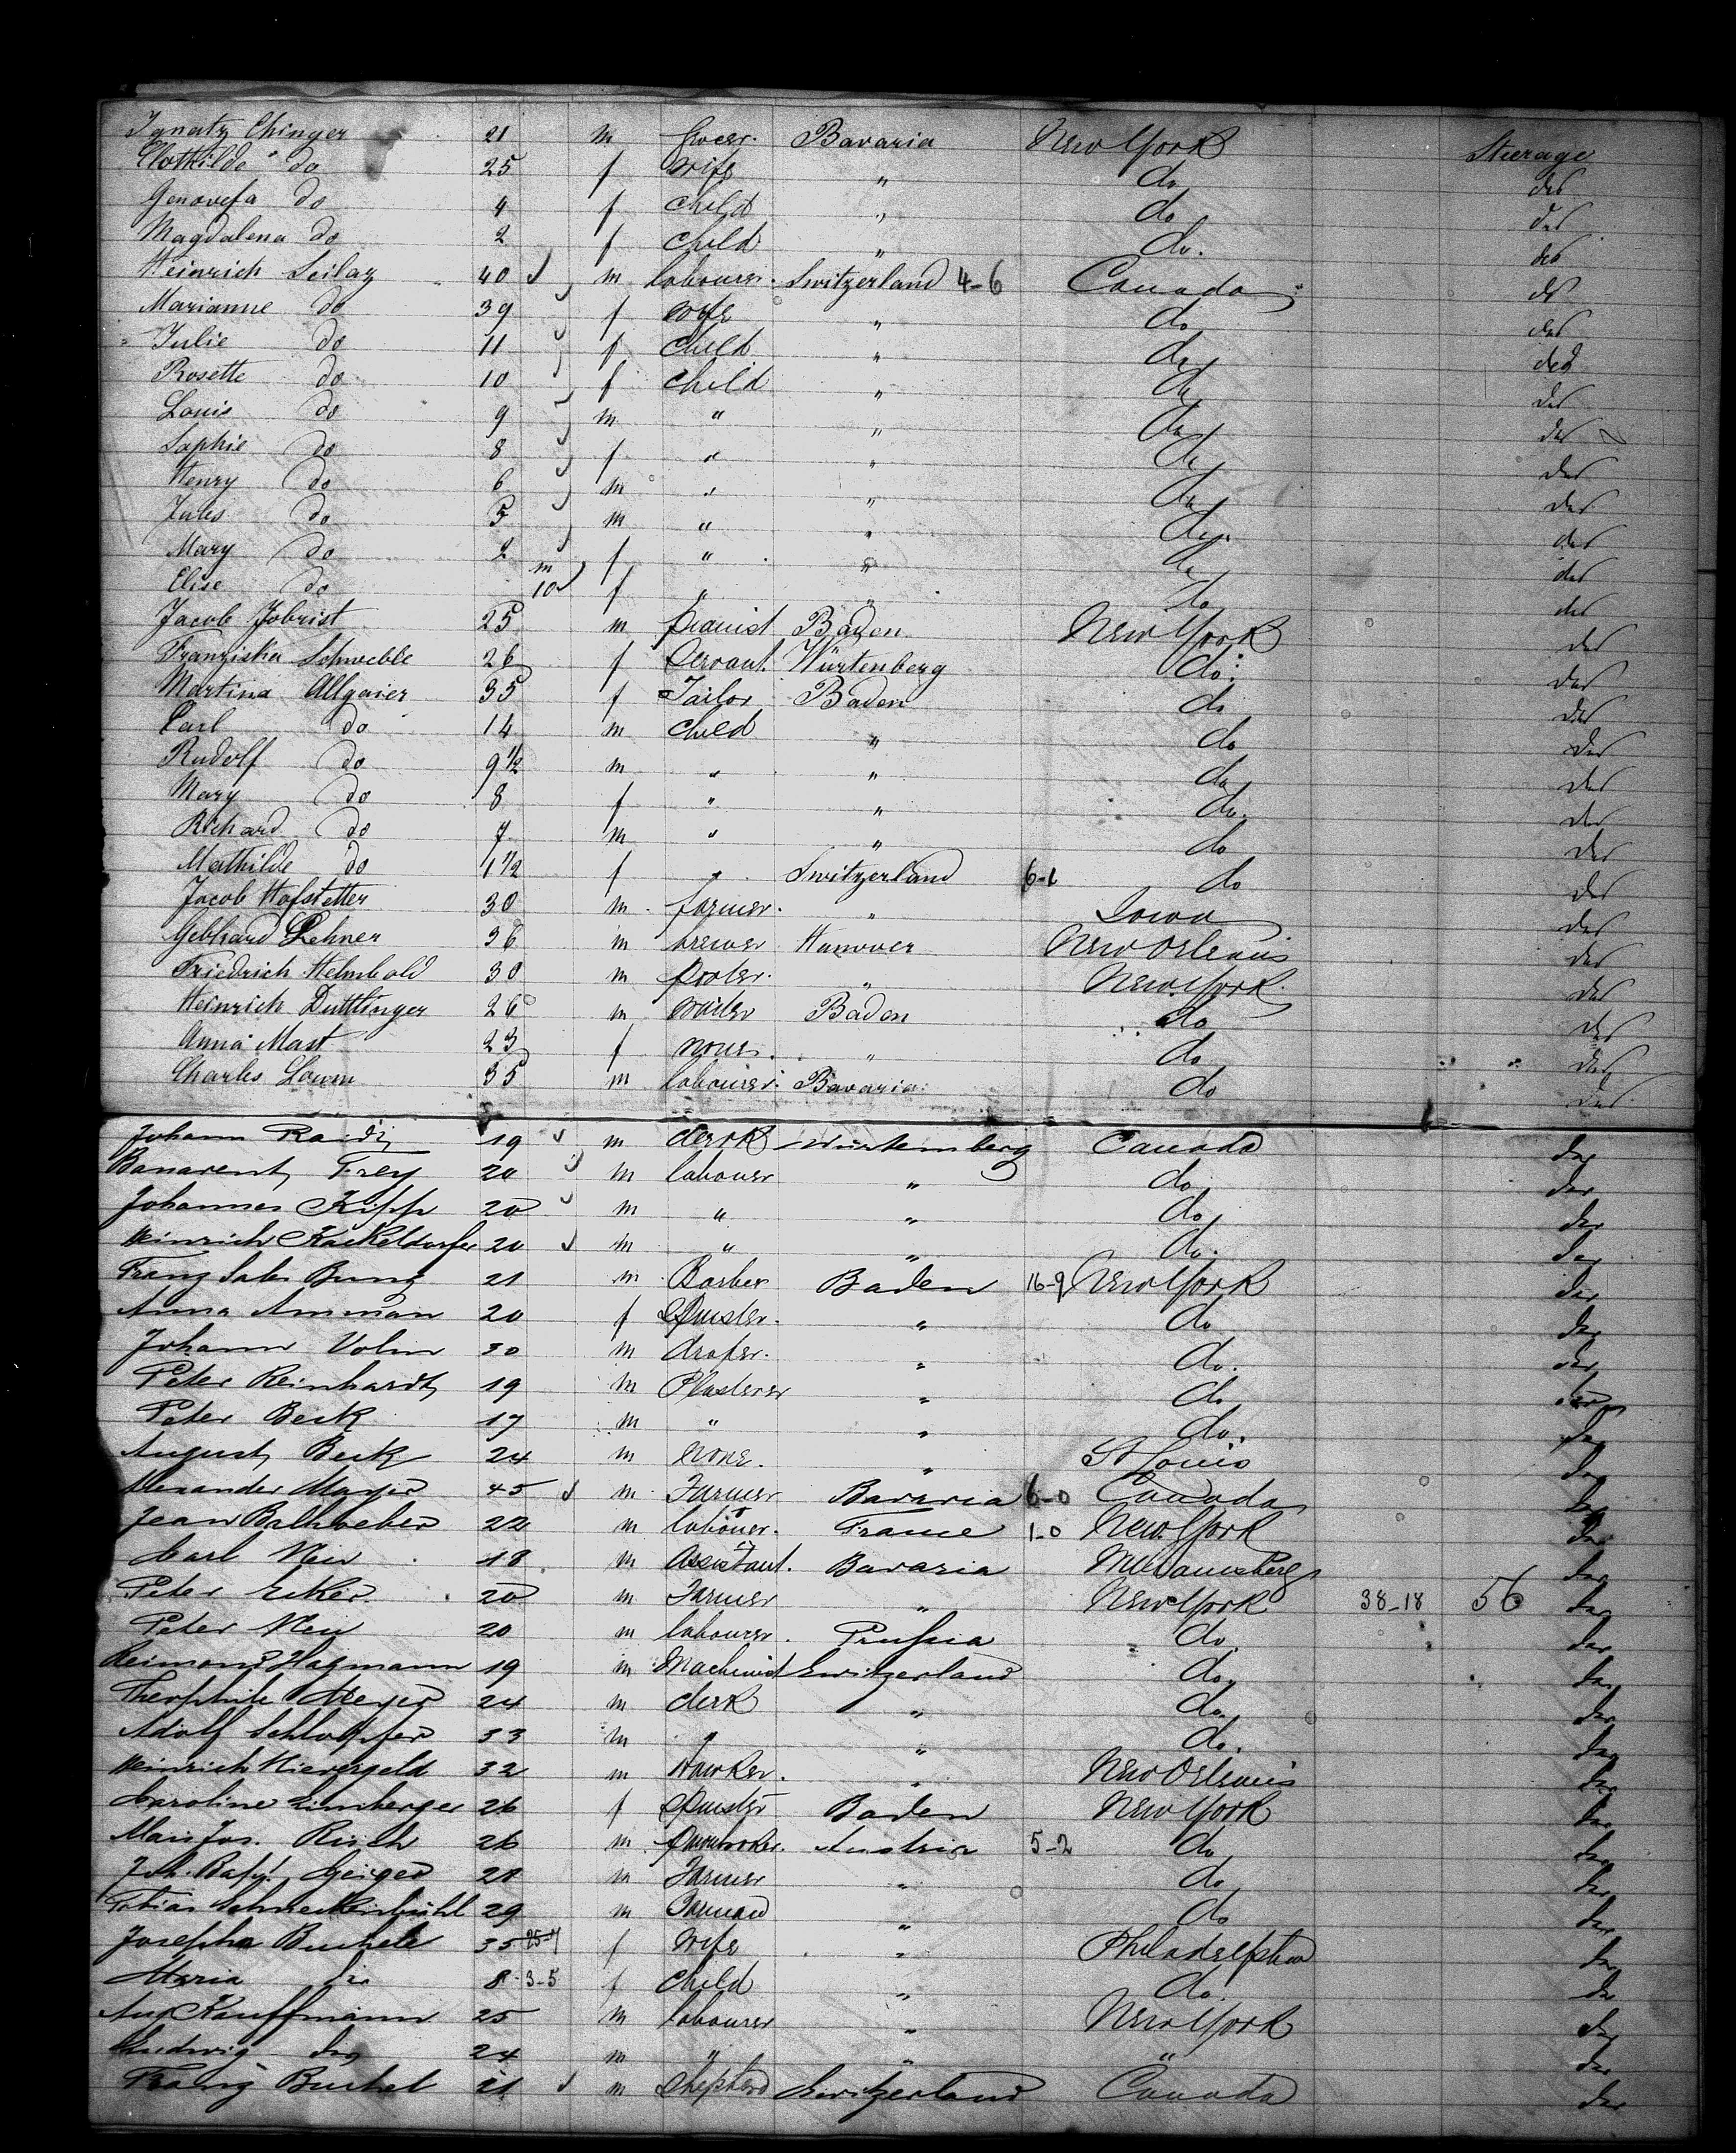 Ignatz Ehinger 21 m Grocer. Bavaria New York Steerage
Clothilde do 25 f wife " do do
Genovefa do 4 f child " do do
Magdalena do 2 f child " do. do
Heinrich Seilaz 40 m labourer. Switzerland 4-6 Canada do
Marianne do 39 f wife " do do
Julie do 11 f child " do do
Rosette do 10 f child " do do
Louis do 9 m " " do do
Sophie do 8 f " " do do
Henry do 6 m " " do do
Jules do 5 m " " do. do
Mary do 2 f " " do do
Elise do m 10 f " " do do
Jacob Jobrist 25 m pianist Baden New York do
Franziska Schweble 26 f Servant. Würtenberg do. do
Martina Allgaier 35 f Tailor Baden do do
Carl do 14 m child " do do
Rudolf do 9 1/2 m " " do do
Mary do 8 f " " do. do
Richard do 7 m " " do do
Mathilde do 1 1/2 f " Switzerland 6-1 do do
Jacob Hofstetter 30 m. farmer. " Iowa do
Gebhard Lehner 36 m brewer Hanover New Orleans do
Friedrich Helmbold 30 m porter. " New York. do
Heinrich Duttlinger 26 m waiter Baden do do
Anna Mast 23 f none. " do do
Charles Lowen 35 m labourer. Bavaria. do do
Johann 19 m clerk Würtemberg Canada do
Frey 20 m labourer " do do
Johannes Kipp 20 m " " do do
Heinrich 20 m " " do. do
Franz Sales 21 m Barber Baden 16-9 New York do
Anna Amman 20 f Spinster. " do do
Johann Volm 30 m draper. " do. do
Peter Reinhardt 19 m Plasterer " do do
Peter Beck 17 m " " do. do
August Beck 24 m none. " St Louis do
Alexander Mayer 45 m. Farmer Bavaria 6-0 Canada do
Jean 22 m labourer. France 1-0 New York do
Carl Neu 18 m Assistant. Bavaria Williamsberg do
Peter Ecker 20 m Farmer " New York 38-18 56 do
Peter Neu 20 m labourer. Prussia do. do
Reimond Hagmann 19 m Machinist Switzerland do. do
Theophile Meyer 24 m clerk " do. do
Adolf Schlapfer 33 m " " do. do
Heinrich Nievergeld 32 m Hawker. " New Orleans do
Caroline Limberger 26 f Spinster Baden New York do
Risch 26 m pawnbroker. Austria 5-2 do do
Joh. Bapt. Geiger 20 m Farmer " do do
Tobias 29 m " do do
Josepha Buchele 35 25-7 f Wife " Philadelphia do
Maria do 8 3-5 f child " do. do
Aug Kauffmann 25 m labourer " New York do
Ludwig do 24 m " " " do
Franz Buchel 21 m Shepherd Switzerland Canada do